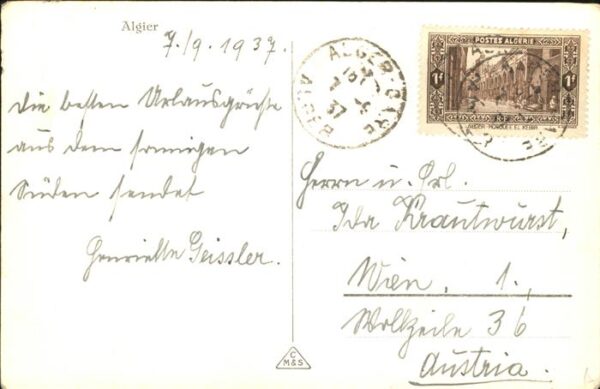 Algier
7./9. 1937.
Die besten Urlausgrüße
aus dem sonnigen
Süden sendet
Henriette Geissler.
ALGER
37
POSTES ALGERIE
1F 1F
RF
Herrn u. Frl.
Ida Krautwurst,
Wien. 1.,
Wollzeile 36
Austria.
C
M&S